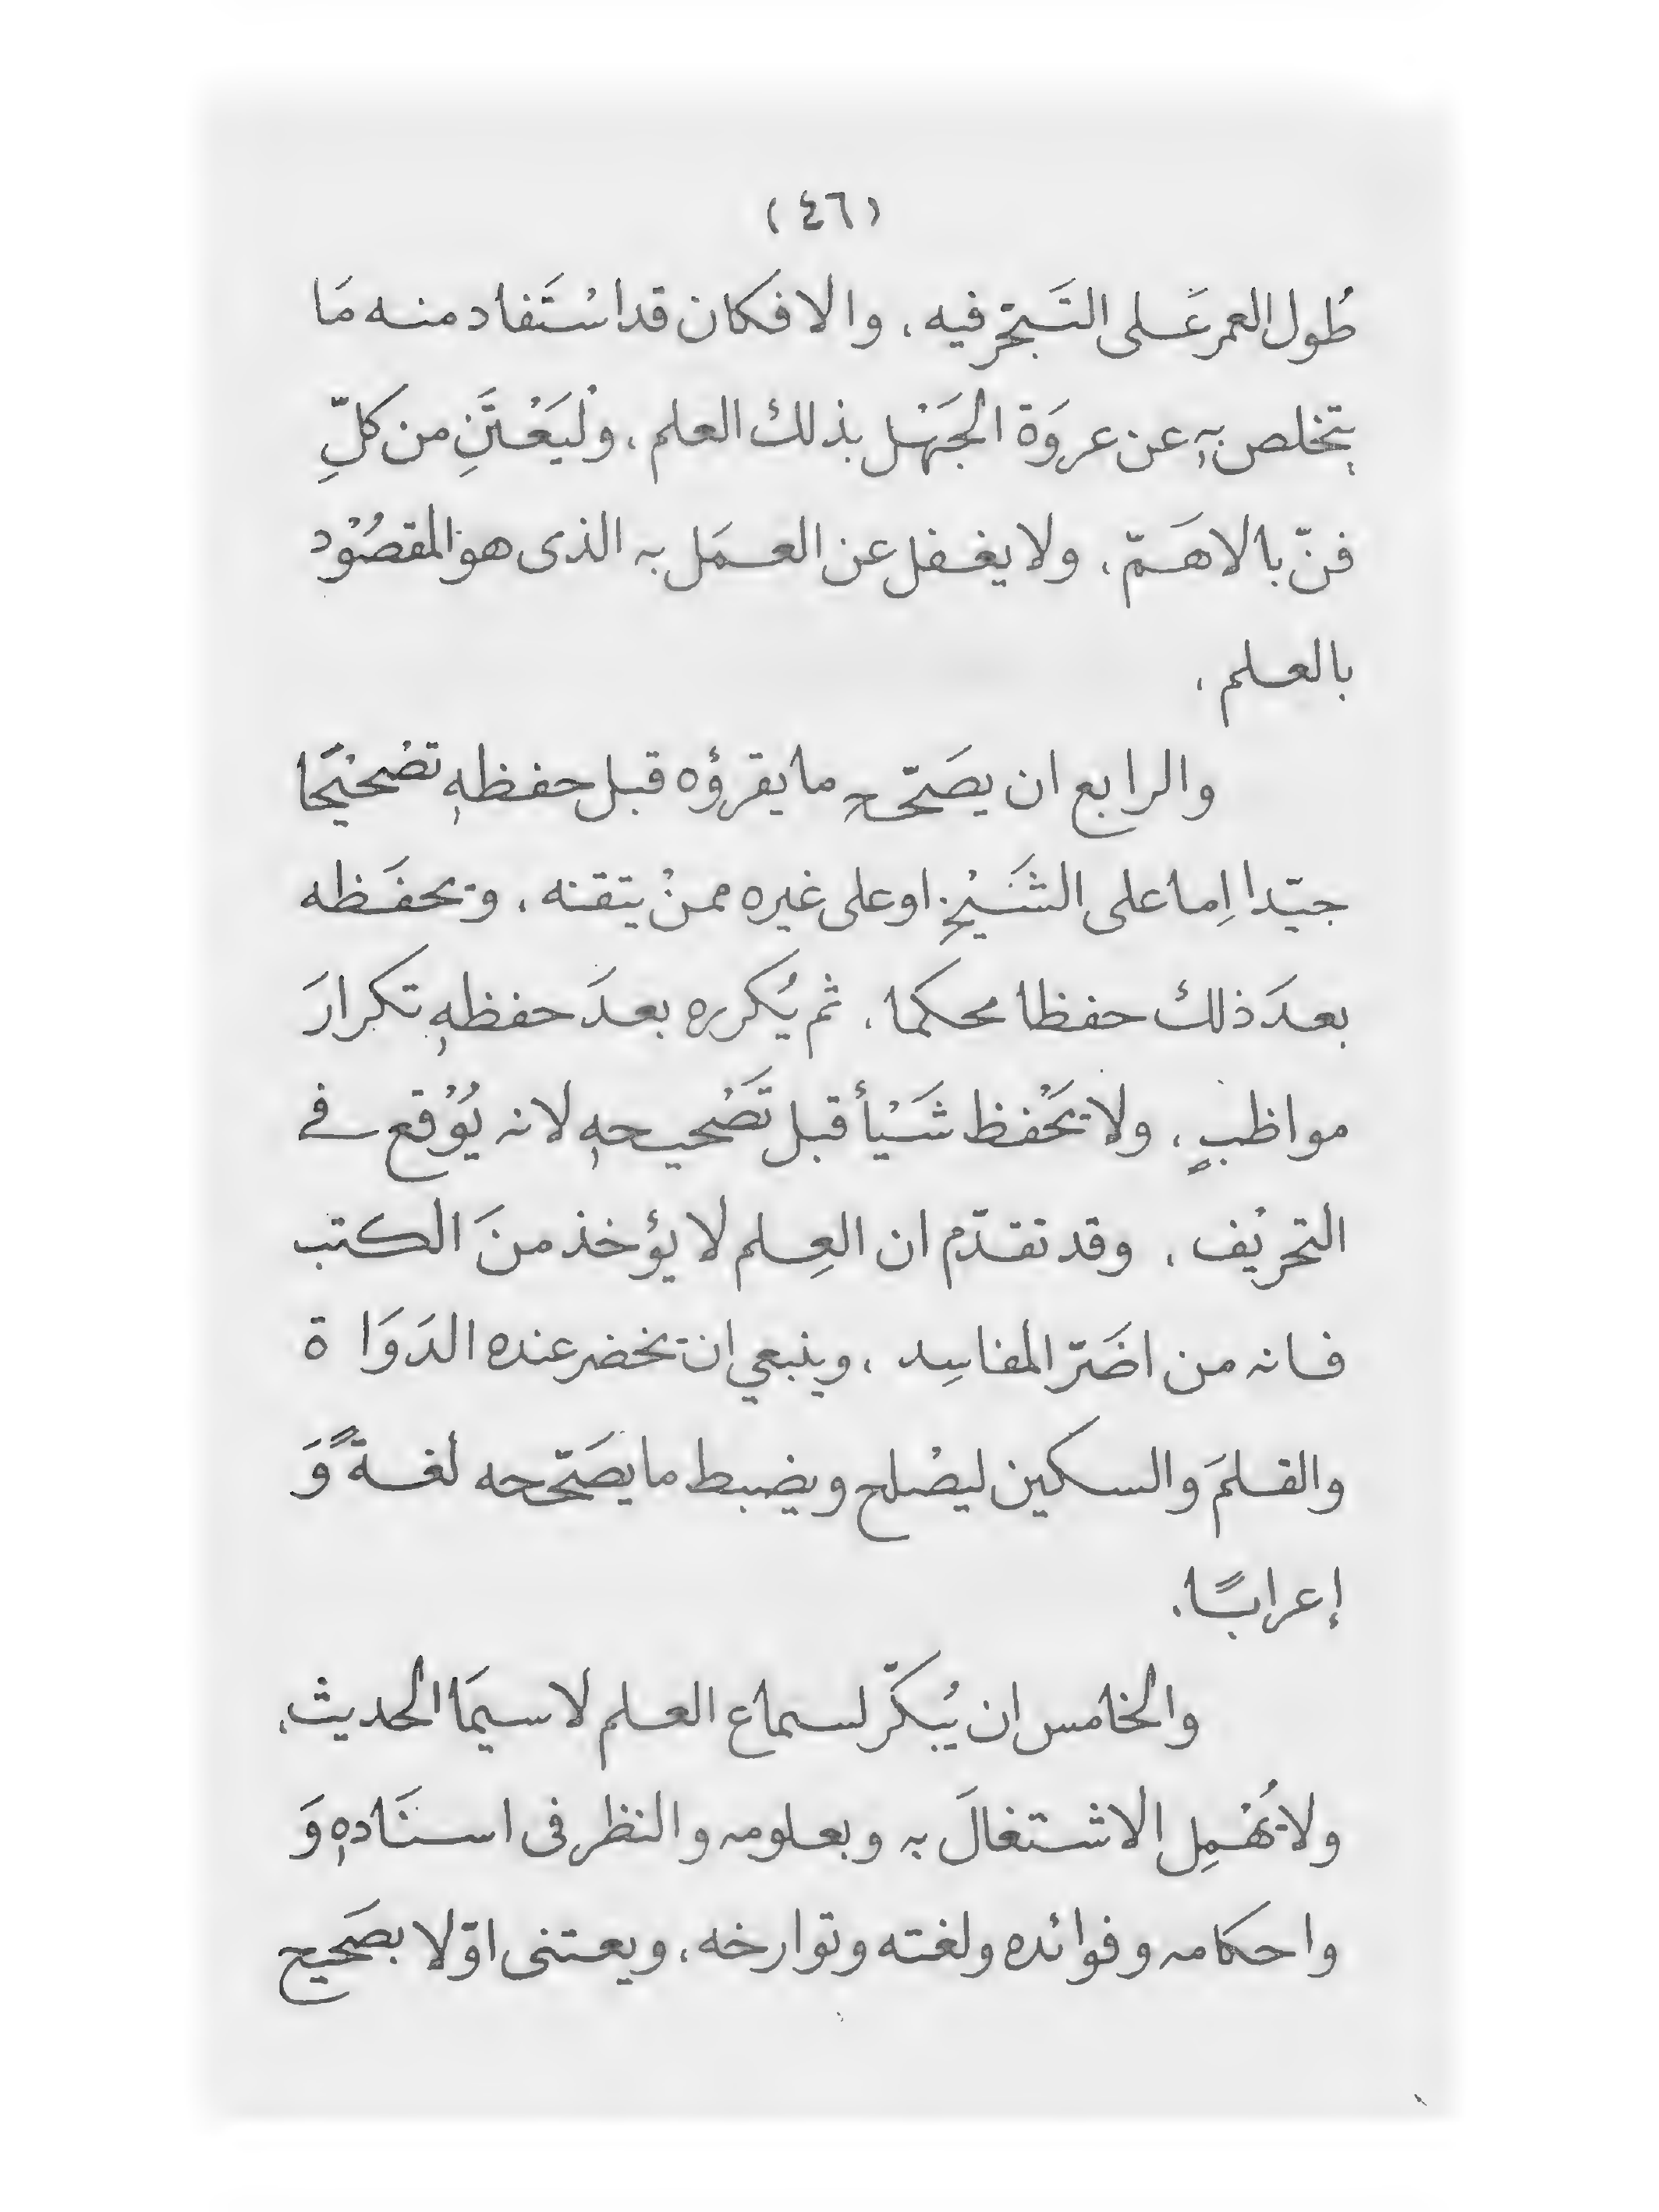 (٤٦)
طُول العمر عَلى التَبحّر فيه، والا فكان قد اسْتَفاد منه مَا
يتخلص بهِ عن عروَة الجَهْل بذلك العلم، ولْيَعْتَنِ من كلِّ
فنّ بالاهَمّ، ولا يغفل عن العمَل به الذى هو المقصُوْد
بالعلم،
والرابع ان يصَحّح ما يقرؤه قبل حفظهِ تصْحيْحًا
جيّدا اِما على الشَيْخِ او على غيره ممنْ يتقنه، ويحفَظه
بعدَ ذلك حفظا محكما، ثم يُكرره بعدَ حفظهِ تكرارَ
مواظبٍ، ولا يَحْفظ شَيْأ قبل تَصْحيحهِ لانه يُوْقع في
التحريْف، وقد تقدّم ان العِلم لا يؤخذ منَ الكتب
فانه من اضَرّ المفاسِد، وينبغي ان يحضر عنده الدَوَاة
والقلمَ والسكين ليصْلح ويضبط ما يصَحّحه لغةً وَ
إعرابًا.
والخامس ان يُبكّر لسماع العلم لاسيمَا الحديث،
ولا يُهْمِل الاشتغالَ به وبعلومه والنظر فى اسنَادهِ وَ
واحكامه وفوائده ولغته وتوارخه، ويعتنى اوّلا بصَحيح